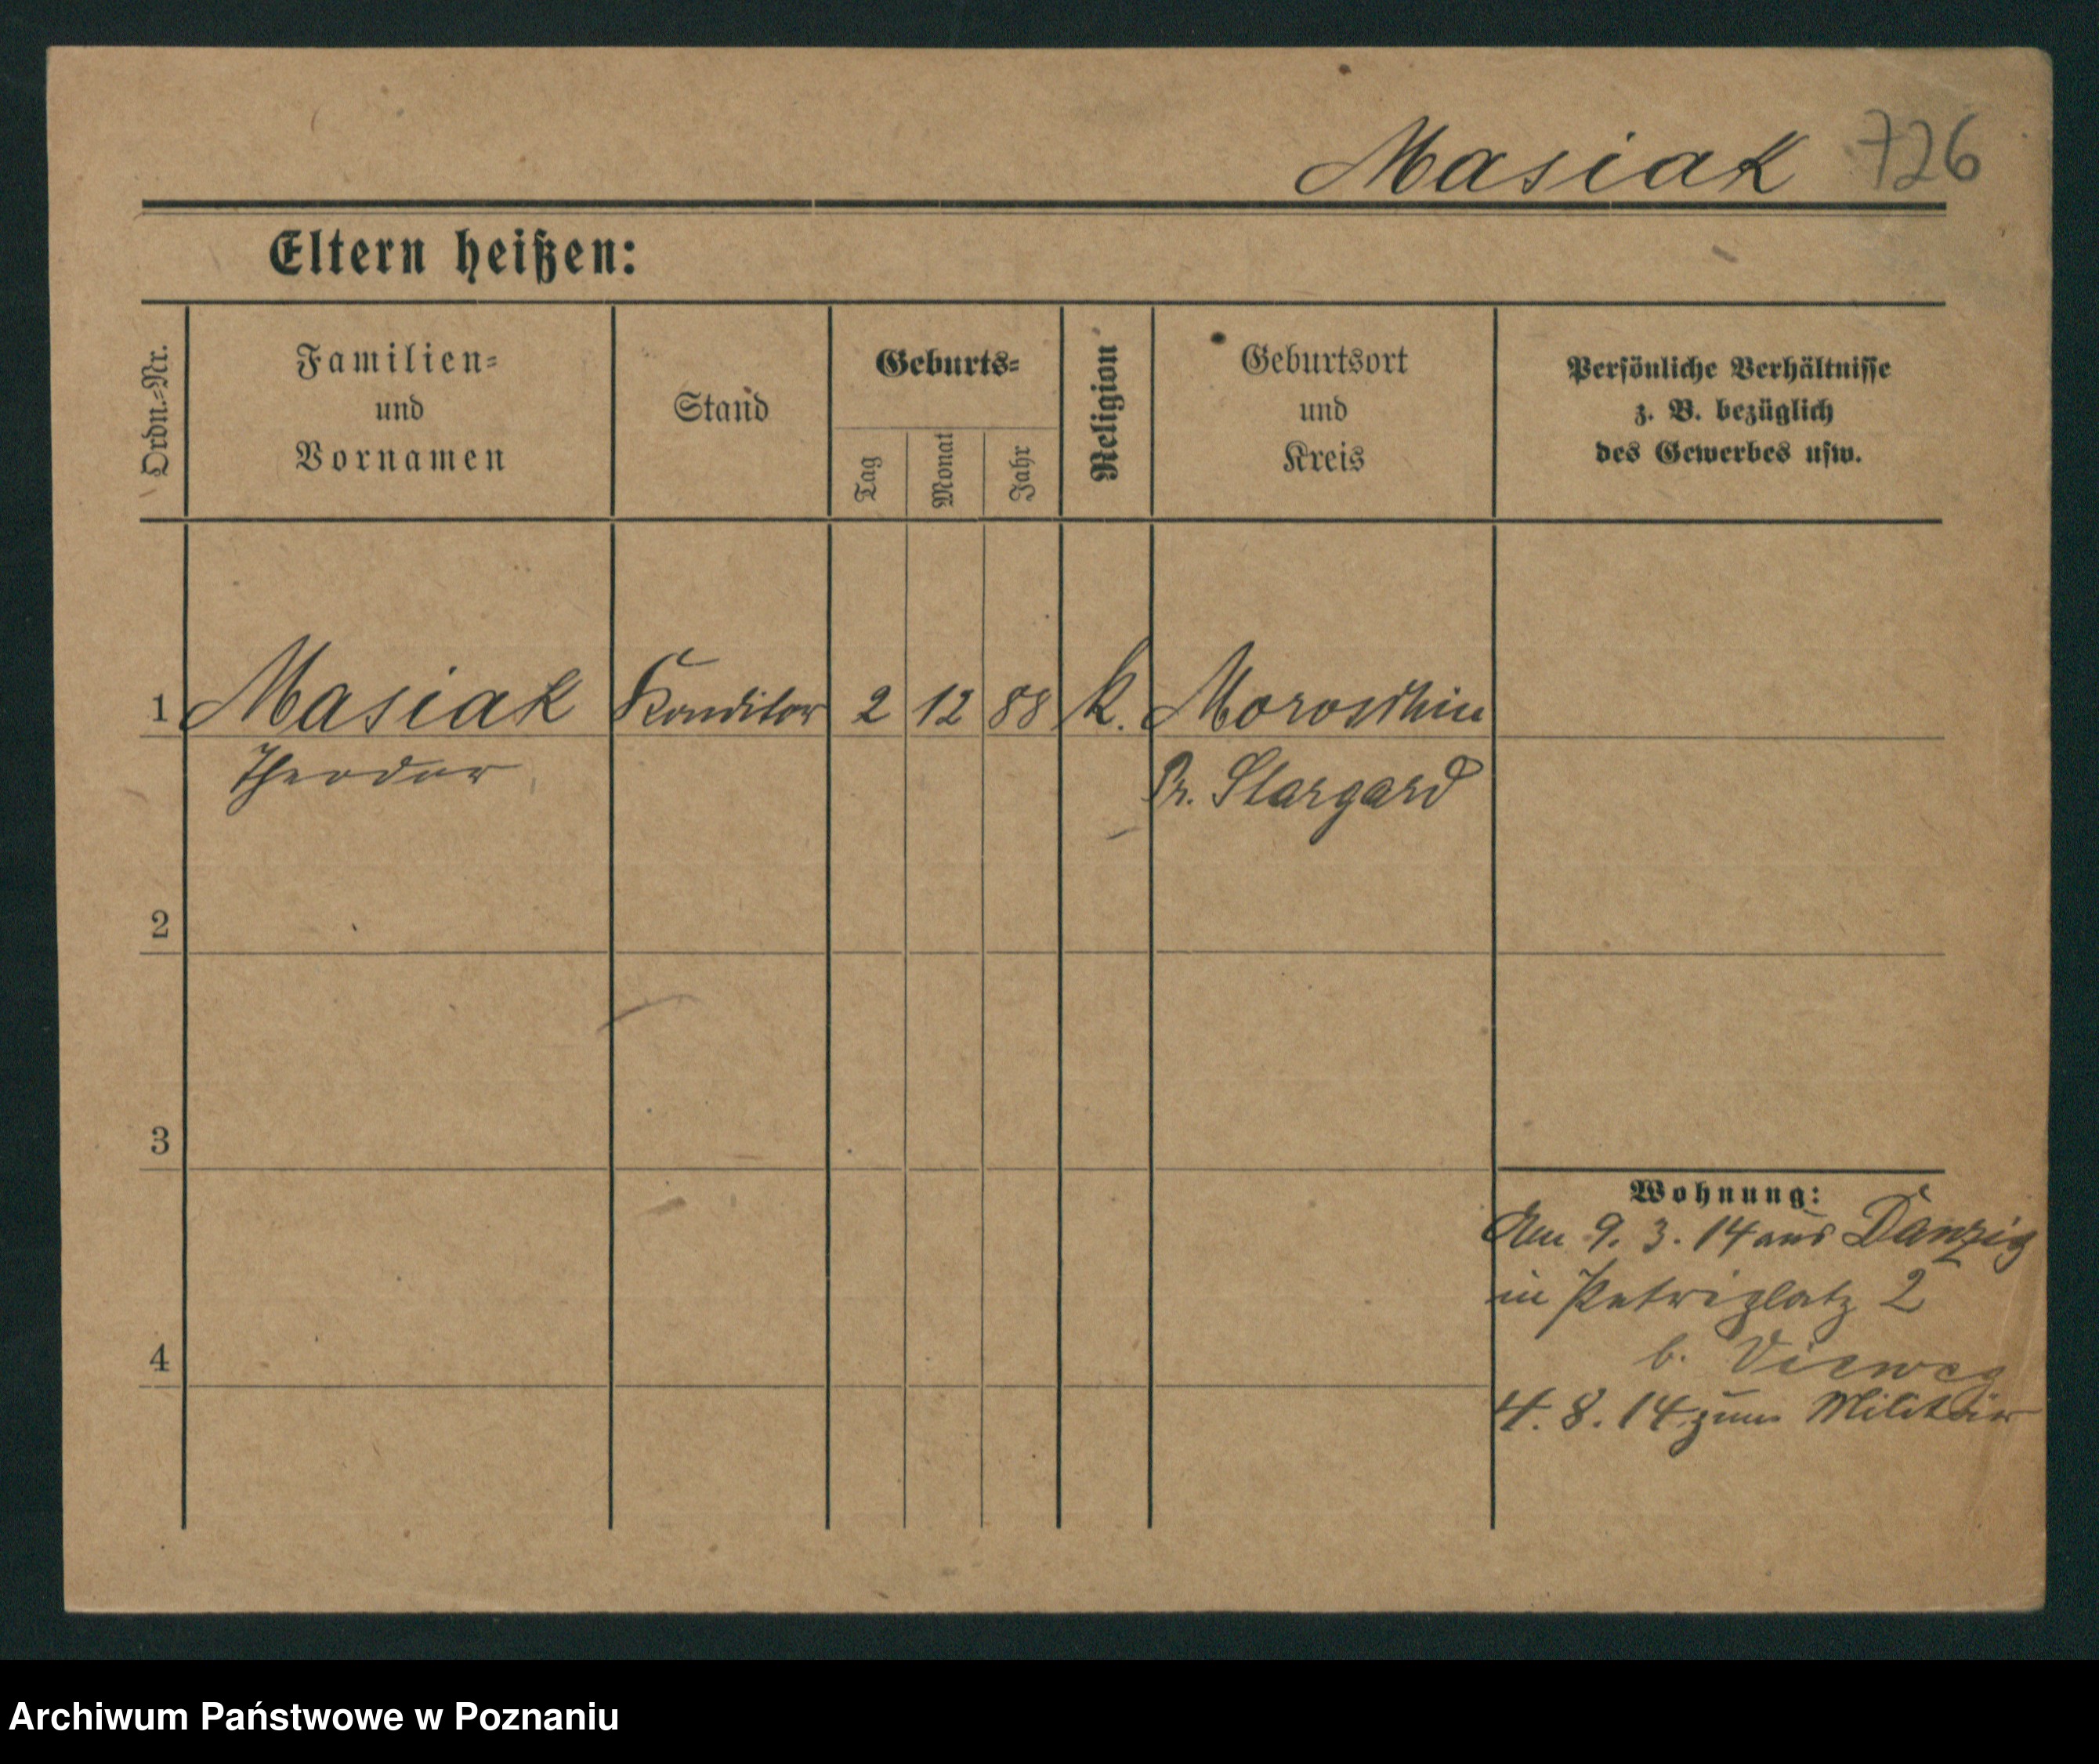 Masiak 726
Eltern heißen:
Ordn.-Nr.
Familien=
und
Vornamen
Stand
Geburts=
Tag
Monat
Jahr
Religion
Geburtsort
und
Kreis
Persönliche Verhältnisse
z. B. bezüglich
des Gewerbes usw.
1 Masiak Konditor 2 12 88 k. Moroschin
Theodor Pr. Stargard
2
3
4
Wohnung:
Am 9. 3. 14 aus Danzig
in Petriplatz 2
b. Vieweg
4. 8. 14 zum Militär
Archiwum Państwowe w Poznaniu